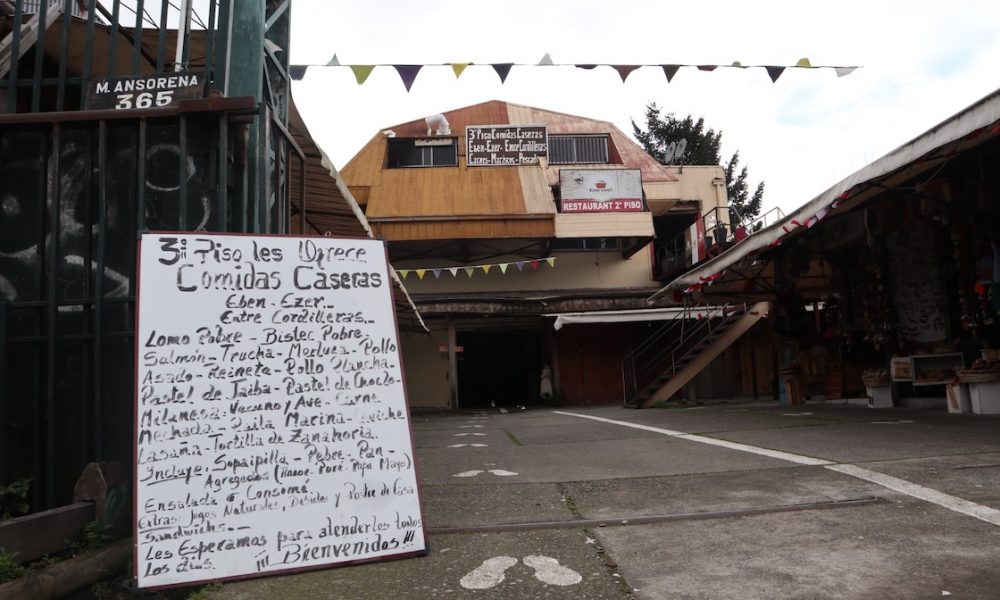 M. ANSORENA
365
3º Piso Comidas Caseras
Eben-Ezer - Entre Cordilleras
Carnes - Mariscos - Pescad
RESTAURANT 2º PISO
3º Piso les Ofrece
Comidas Caseras
Eben-Ezer.-
Entre Cordilleras.-
Lomo Pobre - Bistec Pobre-
Salmón - Trucha - Merluza - Pollo
Asado - Reineta - Pollo Plancha
Pastel de Jaiba - Pastel de Choclo-
Milanesa: Vacuno / Ave - Carne
Mechada - Paila Marina - Ceviche
Lasaña - Tortilla de Zanahoria.
Incluye: Sopaipilla - Pebre - Pan -
Agregados (Arroz - Puré - Papa Mayo)
Ensalada ó Consomé
Extras: Jugos Naturales, Bebidas y Postre de Casa
Sandwichs.-
Les Esperamos para atenderlos todos
Los días. ¡¡¡ Bienvenidos !!!